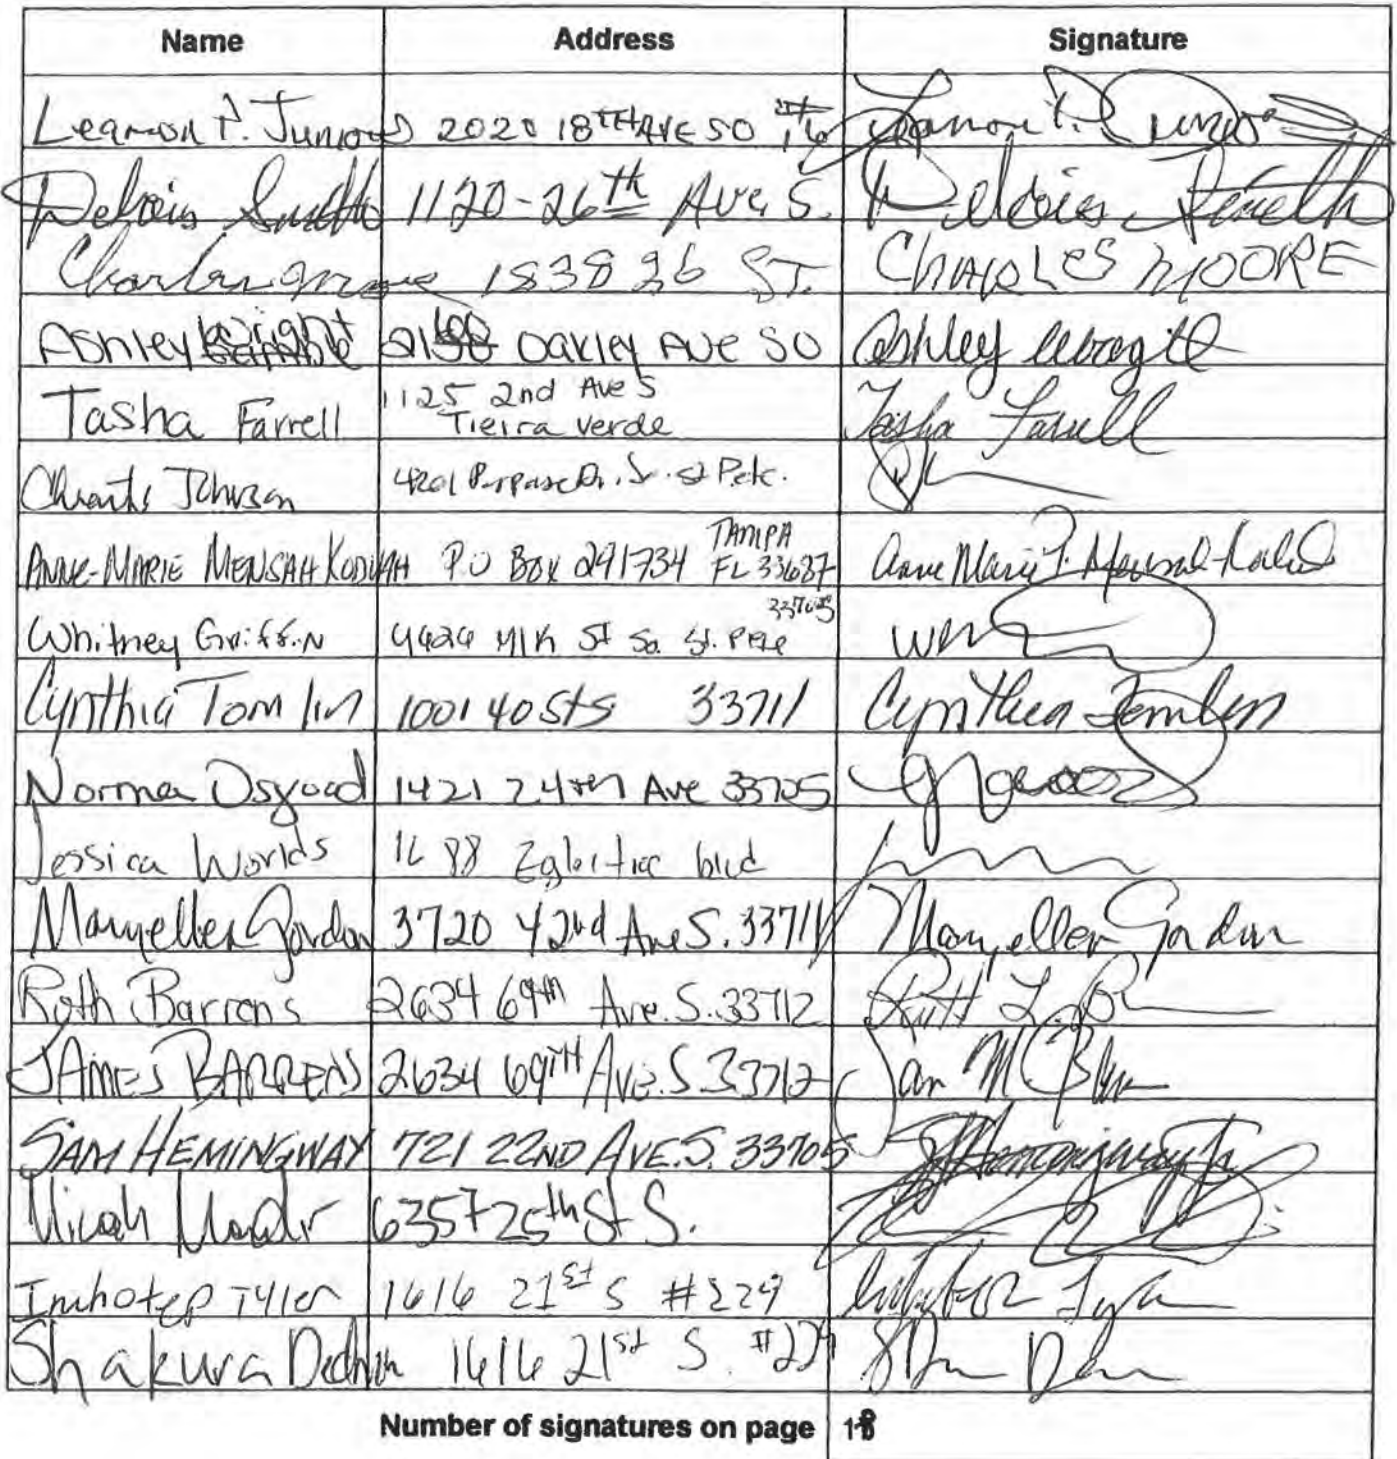 Name Address Signature
Learmon P. Junious 2020 18TH AVE SO Learmon P. Junious
Delois Smith 1120-26th Ave S. Delois Smith
Charles Moore 1838 26 ST. CHARLES MOORE
Ashley Wright Oakley Ave SO Ashley Wright
Tasha Farrell 1125 2nd Ave S Tasha Farrell
Tierra Verde
Johnson 4201 Purpase Dr. So. St Pete.
TAMPA
ANNE-MARIE MENSAH KODUAH P.O Box 291734 FL 33687 Anne Marie
33705
Whitney Griffin 4626 MLK St So. St. Pete
Cynthia Tomlin 1001 40 St S 33711 Cynthia Tomlin
Norma Osgood 1421 24th Ave 33705
Jessica Worlds 1688 blvd
Maryellen Gordon 3720 42nd Ave S. 33711 Maryellen Gordon
Ruth Barrens 2634 69th Ave. S. 33712 Ruth L.
JAMES BARRENS 2634 69TH AVE. S 33712
SAM HEMINGWAY 721 22ND AVE. S. 33705 S Hemingway Jr
Micah 6357 25th St S.
Imhotep Tyler 1616 21st S #229 Imhotep Tyler
Shakura 1616 21st S. #229
Number of signatures on page 18